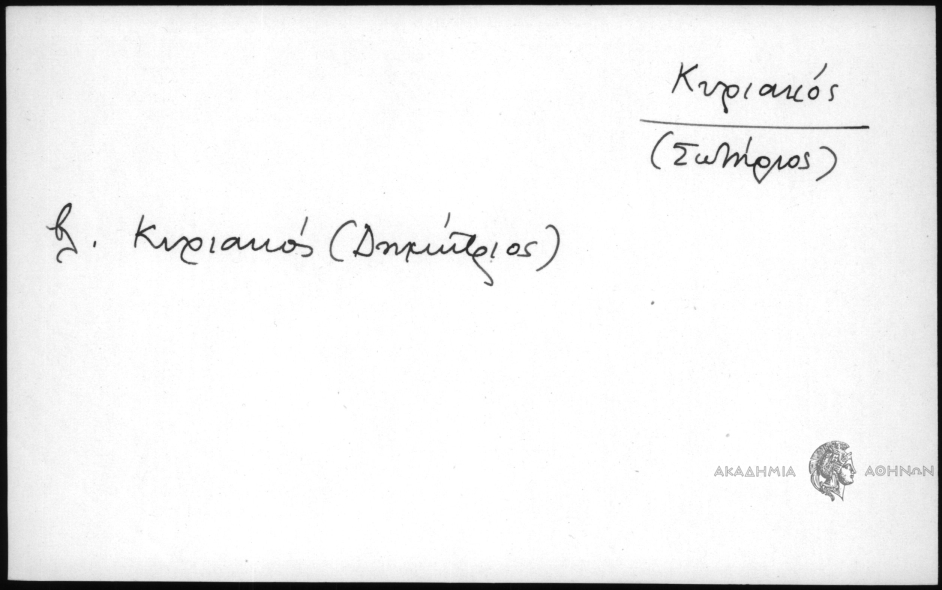 Κυριακός
(Σωτήριος)
βλ. Κυριακός (Δημήτριος)
ΑΚΑΔΗΜΙΑ ΑΘΗΝΩΝ